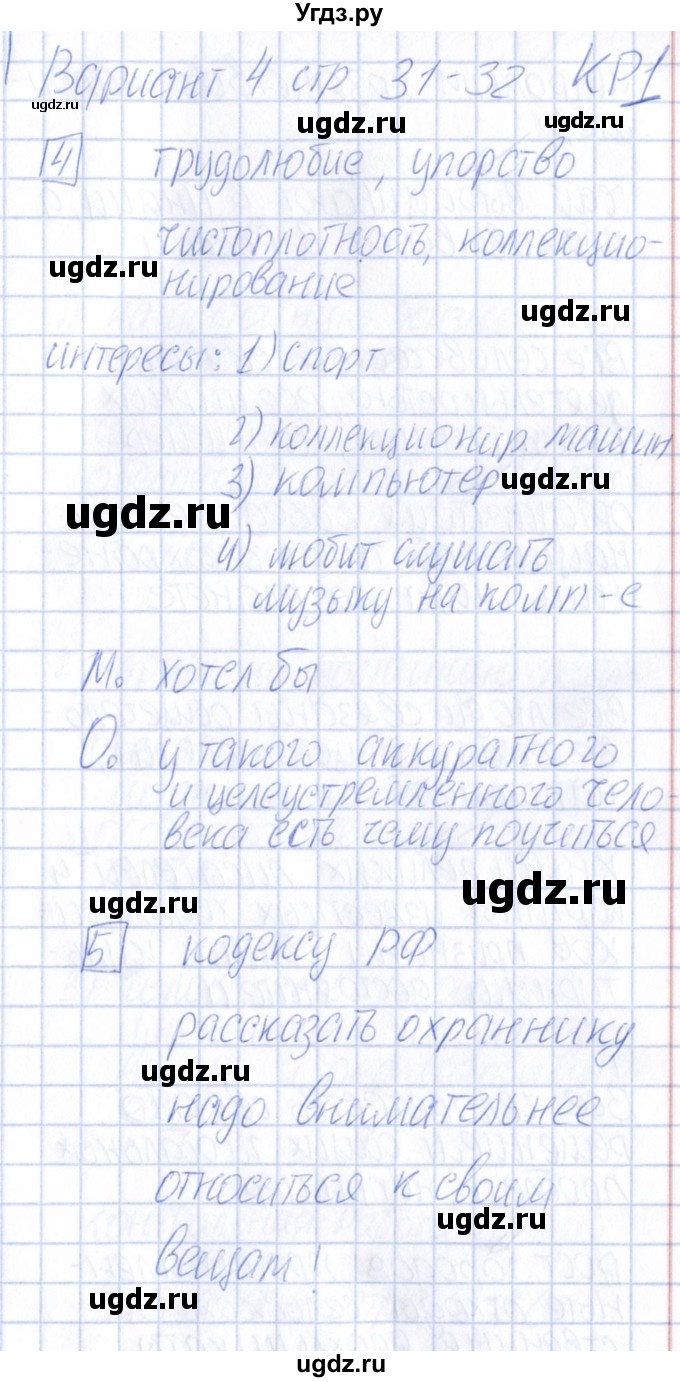 Угдз.ру
Вариант 4 стр 31-32 КР1
ugdz.ru
ugdz.ru
ugdz.ru
4 трудолюбие, упорство
чистоплотность, коллекцио-
ugdz.ru
нирование
ugdz.ru
интересы: 1) спорт
2) коллекционир. машин
3) компьютер
ugdz.ru
ugdz.ru
4) любит слушать
музыку на комп-е
М. хотел бы
О. у такого аккуратного
и целеустремленного чело-
века есть чему поучиться
ugdz.ru
ugdz.ru
5 кодексу РФ
рассказать охраннику
ugdz.ru
надо внимательнее
относиться к своим
ugdz.ru
вещам!
ugdz.ru
ugdz.ru